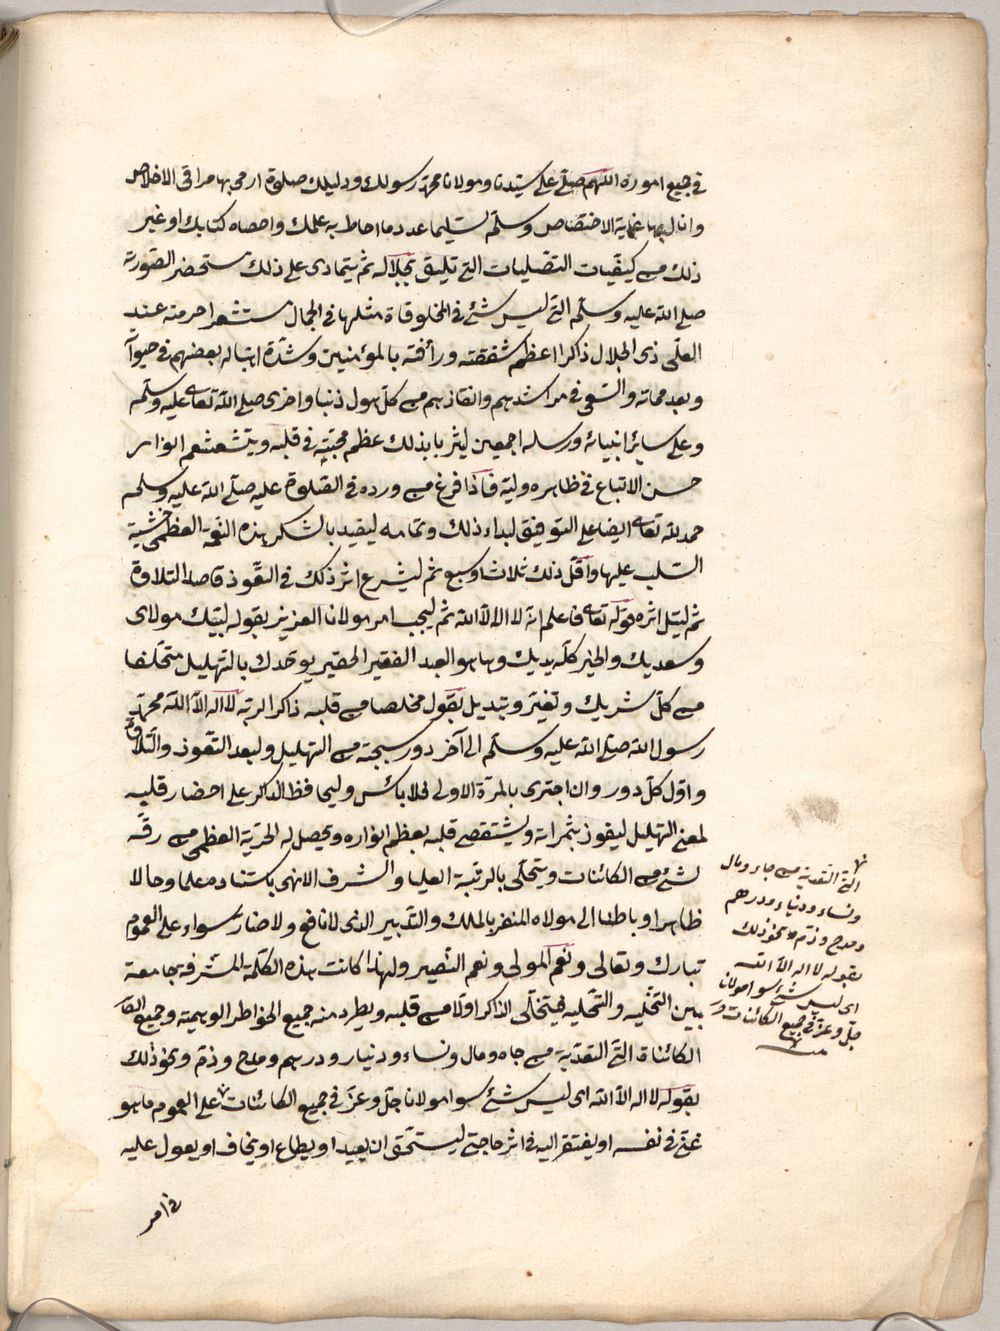 في جميع اموره اللهم صل على سيدنا ومولانا محمد رسولك ودليلك صلوة ارمى بها مراقى الاخلاص
وانال بها غاية الاختصاص وسلم تسليما عدد ما احاط به علمك واحصاه كتابك او غير
ذلك من كيفيات التصليات التي تليق بجلاله ثم يتمادى على ذلك مستحضر الصورة
صلى الله عليه وسلم التي ليس شئ في المخلوقاة مثلها في الجمال مستشعرا حرمته عند
العلي ذى الجلال ذاكرا اعظم شفقته ورأفته بالمؤمنين وشدة
وبعد مماته والسعى في مراشدهم وانقاذهم من كل هول دنيا واخرى صلى الله تعالى عليه وسلم
وعلى سائر انبيائه ورسله اجمعين ليثر با بذلك عظم محبته في قلبه ويتشعشع انوار
حسن الاتباع في ظاهره وليه فاذا فرغ من ورده في الصلوة عليه صلى الله عليه وسلم
حمد لله تعالى ايضا على التوفيق لبداء ذلك وتمامه ليقيد بالشكر بهذه النعمة العظمى خشية
السلب عليها واقل ذلك ثلاث او سبع ثم ليشرع اثر ذلك في التعوذ قاصدا التلاوة
ثم ليتل اثره قوله تعالى فاعلم انه لا اله الا الله ثم ليجب امر مولانا العزيز بقوله لبيك مولاى
وسعديك والخير كله بيديك وها هو العبد الفقير الحقير يوحدك بالتهليل متخلصا
من كل شريك وتغير وتبديل بقول مخلصا من قلبه ذاكرا لربه لا اله الا الله محمد
رسول الله صلى الله عليه وسلم الى آخر دور سبحته من التهليل وليعد التعوذ والتلاوة
واول كل دور وان اجترى بالمرة الاولى فلا بائس وليحافظ الذاكر على احضار قلبه
لمعنى التهليل ليفوز بثمراته ويستضئ قلبه بعظم انواره ويحصل له الحرية العظمى من رقه
لشئ من الكائنات ويتحلى بالرتبة العليا والشرف الانهى باستناده علما وحالا
ظاهرا وباطنا الى مولاه المنفر بالملك والتدبير الذى لا نافع ولا ضار سواء على العموم
تبارك وتعالى ونعم المولى ونعم النصير ولهذا كانت هذه الكلمة المشرفة جامعة
بين التخلية والتحلية فيتخلى الذاكر اولا من قلبه ويطرد منه جميع الخواطر الوهمية وجميع
الكائنات التي من جاه ومال ونساء ودنيار ودرهم ومدح وذم ونحو ذلك
بقوله لا اله الا الله اى ليس شئ سوا مولانا جل وعز في جميع الكائنات على العموم ما هو
غنى في نفسه او يفتقر اليه في اثر ما حتى ليستحق ان يعبد او يطاع او يخاف او يعول عليه
في امر
التي من جاه ومال
ونساء ودنياء ودرهم
ومدح وذم ونحو ذلك
بقوله لا اله الا الله
اى ليس شئ سوا مولانا
جل وعز في جميع الكائنات